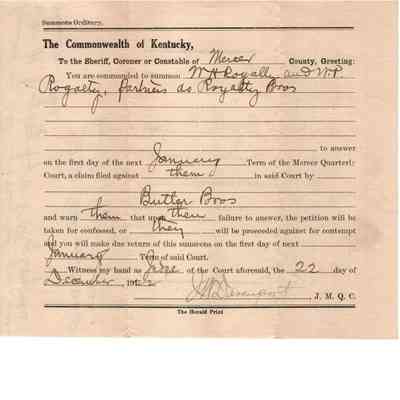 Summons Ordinary.
The Commonwealth of Kentucky,
To the Sheriff, Coroner or Constable of Mercer County, Greeting:
You are commanded to summon W H Royalty and W. P.
Royalty, partners as Royalty Bros
to answer
on the first day of the next January Term of the Mercer Quarterly
Court, a claim filed against them in said Court by
Butler Bros
and warn them that upon their failure to answer, the petition will be
taken for confessed, or they will be proceeded against for contempt
and you will make due return of this summons on the first day of next
January Term of said Court.
Witness my hand as Judge of the Court aforesaid, the 22 day of
December 191
Davenport, J. M. Q. C.
The Herald Print